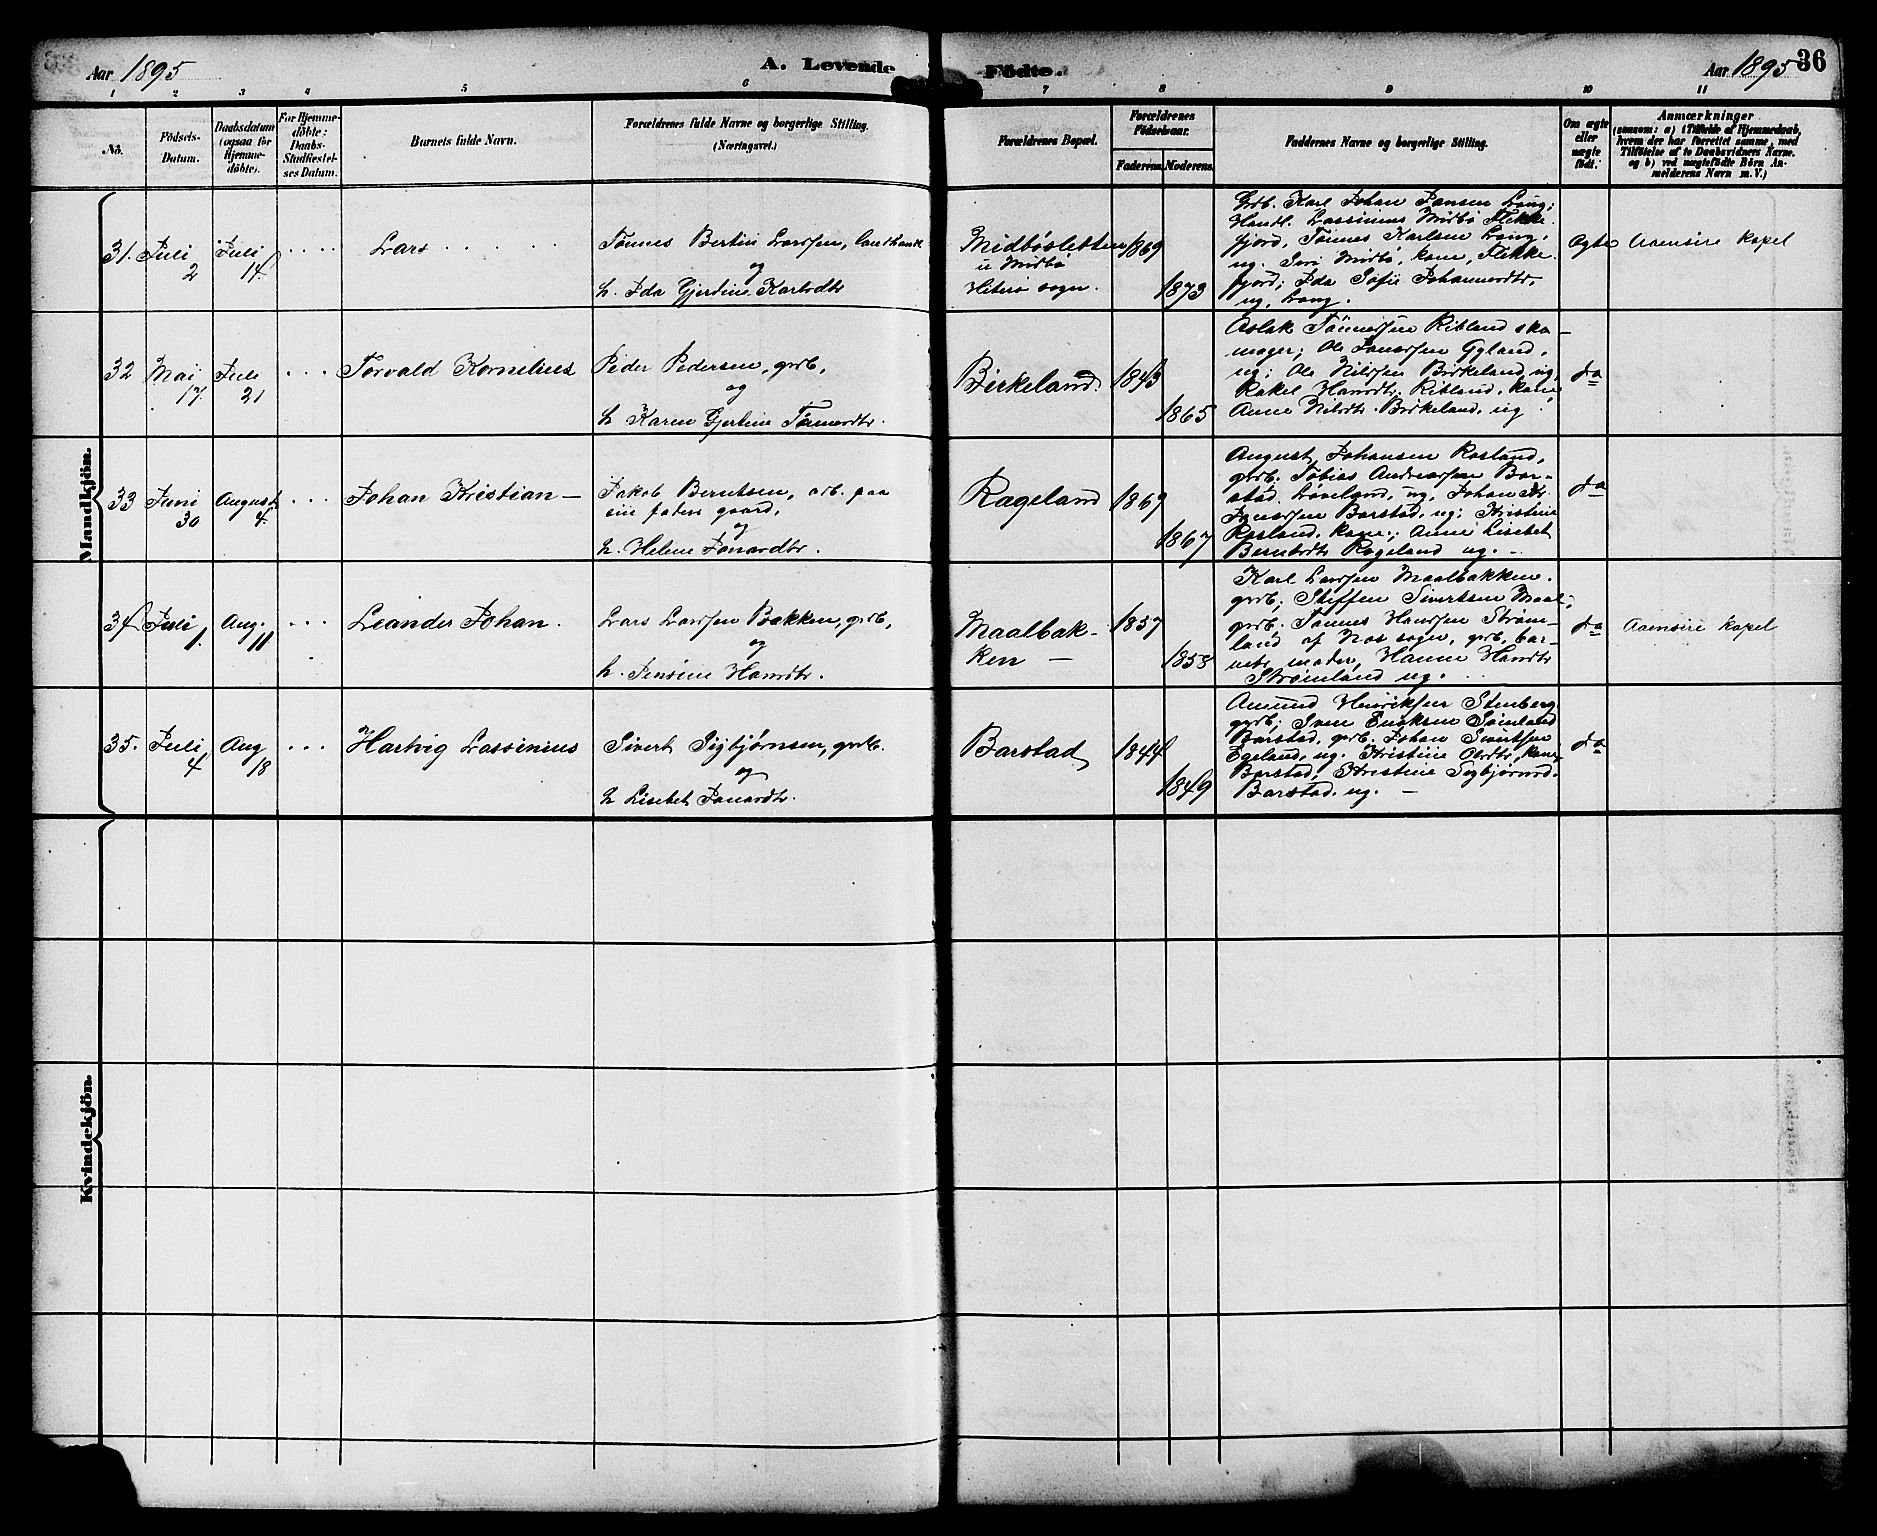 Aar 1895 A. Levende Fødte. Aar 1895 36
1 2 3 4 5 6 7 8 9 10 11
No.
Fødsels-Datum.
Daabsdatum (ogsaa for Hjemmedøbte).
For Hjemmedøbte: Daabs-Stadfæstelses Datum.
Barnets fulde Navn.
Forældrenes fulde Navne og borgerlige Stilling.
(Næringsvei.)
Forældrenes Bopæl.
Forældrenes Fødselsaar.
Faderens. Moderens.
Faddernes Navne og borgerlige Stilling.
Om ægte eller uægte født.
Anmærkninger
(saasom: a) i Tilfælde af Hjemmedaab,
hvem der har forrettet samme, med
Tilføielse af to Daabsvidners Navne.
og b) ved uægtefødte Børn Anmelderens Navn m.V.)
Mandkjön.
31. Juli 2 Juli 14 Lars
Tønnes Bertin Larssen, landhandl.
og
h. Ida Gjertine Karlsdtr
Midbøsletten
u Midbø
Hiterø sogn.
1869
1873
Grdb. Karl Johan Jansen Log;
Handl. Lassinius Midbø Flekke-
fjord, Tønnes Karlsen Log,
ug. Siri Midbø, kone, Flekke-
fjord; Ida Sofie Johannesdtr,
ug. Log.
Ægte
Aaensire kapel
32 Mai 17. Juli 21 Torvald Kornelius
Peder Pedersen, grdb,
og
h Karen Gjertine Tønnesdtr.
Birkeland.
1843
1865
Aslak Tønnessen Ribland sko-
mager; Ole Jonassen Gyland,
ug; Ole Nilssen Birkeland, ug,
Rakel Hansdtr. Ribland, kone
Anne Nilsdtr. Birkeland, ug
do
33 Juni 30 August 4. Johan Kristian —
Jakob Berntsen, arb. paa
sin faders gaard,
og
h. Helene Jonasdtr.
Rageland
1869
1867
August Johansen Rosland,
grdb. Tobias Andreassen Bar-
stad, ug, Johan Kr.
Jonassen Barstad, ug; Kristine
Rosland, kone; Anne Lisebet
Berntsdtr Rageland ug. —
do
34 Juli 1. Aug. 11 Leander Johan.
Lars Larssen Bakken, grdb,
og
h. Jensine Hansdtr.
Maalbak-
ken —
1857
1858
Karl Larssen Maalbakken.
grdb; Steffen Sivertsen Maal-,
grdb. Tønnes Hanssen Strøm-
land af Nes sogn, grdb, bar-
nets moder, Hanne Hansdtr
Strømland ug.
do
Aaensire kapel
35. Juli 4 Aug 18 Hartvig Lassinius
Sivert Sigbjørnsen, grdb.
og
h Lisebet Jonasdtr.
Barstad
1844
1849
Amund Henriksen Stenberg
grdb; Sven Eriksen
Barstad, grdb. Johan Sivertsen
Egeland, ug. Kristine Olsdtr, kone,
Barstad; Kristine Sigbjørnsd.
Barstad. ug. —
do
Kvindekjön.